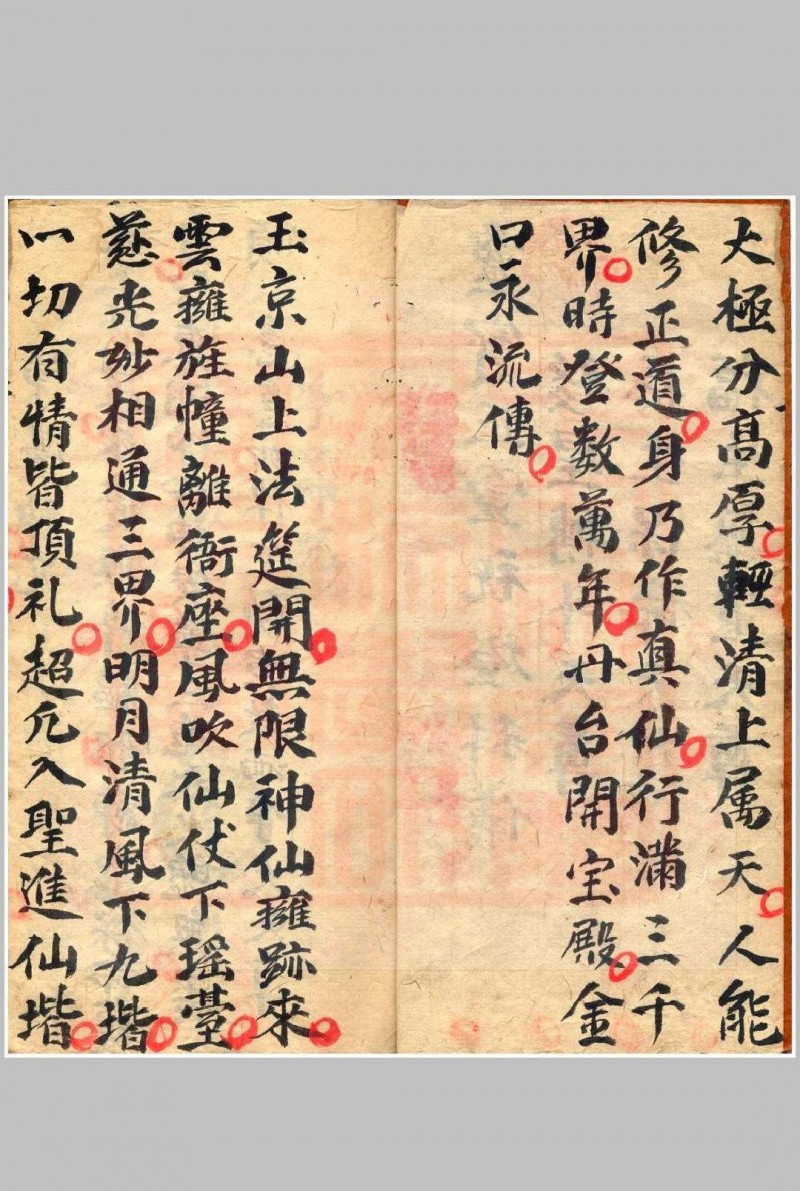 大極分高厚輕清上属天人能
修正道身乃作真仙行滿三千
界時登数萬年丹台開宝殿金
口永流傳
玉京山上法筵開無限神仙擁跡來
雲擁旌幢離衙座風吹仙仗下瑶臺
慈光妙相通三界明月清風下九堦
一切有情皆頂礼超凢入聖進仙堦